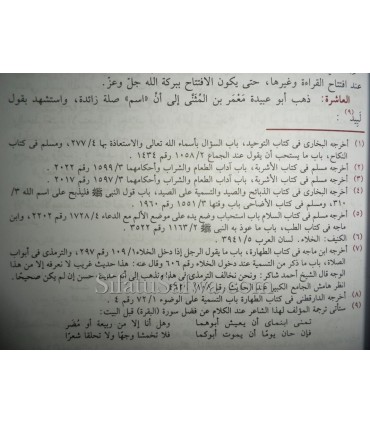 عند افتتاح القراءة وغيرها، حتى يكون الافتتاح ببركة الله جلّ وعزّ.
العاشرة: ذهب أبو عبيدة مَعْمَر بن المُثَنَّى إلى أنّ «اسم» صلة زائدة، واستشهد بقول
لَبِيد(٩):
(١) أخرجه البخارى فى كتاب التوحيد، باب السؤال بأسماء الله تعالى والاستعاذة بها ٢٧٧/٤، ومسلم فى كتاب
النكاح، باب ما يستحب أن يقول عند الجماع ١٠٥٨/٢ رقم ١٤٣٤.
(٢) أخرجه مسلم فى كتاب الأشربة، باب آداب الطعام والشراب وأحكامهما ١٥٩٩/٣ رقم ٢٠٢٢.
(٣) أخرجه مسلم فى كتاب الأشربة، باب آداب الطعام والشراب وأحكامهما ١٥٩٧/٣ رقم ٢٠١٧.
(٤) أخرجه البخارى فى كتاب الذبائح والصيد والتسمية على الصيد، باب قول النبى ﷺ فليذبح على اسم الله ٣/
٣١٠، ومسلم فى كتاب الأضاحى باب وقتها ١٥٥١/٣ رقم ١٩٦٠.
(٥) أخرجه مسلم فى كتاب السلام باب استحباب وضع يده على موضع الألم مع الدعاء ١٧٢٨/٤ رقم ٢٢٠٢، وابن
ماجه فى كتاب الطب، باب ما عوذ به النبى ﷺ ١١٦٣/٢ رقم ٣٥٢٢.
(٦) الكنيف: الخلاء. لسان العرب ٣٩٤١/٥.
(٧) أخرجه ابن ماجه فى كتاب الطهارة، باب ما يقول الرجل إذا دخل الخلاء ١٠٩/١ رقم ٢٩٧، والترمذى فى أبواب
الصلاة، باب ما ذكر من التسمية عند دخول الخلاء رقم ٦٠٦ وقال عنه: هذا حديث غريب لا نعرفه إلا من هذا
الوجه قال الشيخ أحمد شاكر: ونحن نخالف الترمذى فى هذا ونذهب إلى أنه حديث حسن إن لم يكن صحيحًا.
انظر هامش الجامع الكبير عند الحديث رقم
(٨) أخرجه الدارقطنى فى كتاب الطهارة باب التسمية على الوضوء ٧٢/١ رقم ٤.
(٩) ستأتى ترجمة المؤلف لهذا الشاعر عند الكلام عن فضل سورة (البقرة) قبل البيت:
تمنى ابنتاى أن يعيش أبوهما وهل أنا إلا من ربيعة أو مضر
فإن حان يومًا أن يموت أبوكما فلا تخمشا وجهًا ولا تحلقا شعرًا